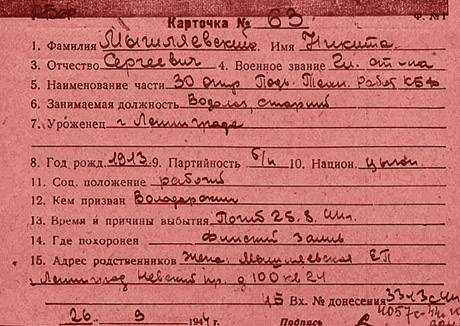 КБФ Ф. №1
Карточка № 63
1. Фамилия Мышляевский Имя Никита
3. Отчество Сергеевич 4. Военное звание Гл. ст-на
5. Наименование части 30 отр Подв. Техн. Работ КБФ
6. Занимаемая должность Водолаз старший
7. Уроженец г Ленинграда
8. Год рожд. 1913 9. Партийность б/п 10. Национ.
11. Соц. положение рабочий
12. Кем призван Володарским
13. Время и причины выбытия Погиб 25.8.
14. Где похоронен Финский залив
15. Адрес родственников Жена. Мышляевская ЕП
Ленинград Невский пр. д 100 кв 21
Вх. № донесения
26. 9 194 г. Подпись